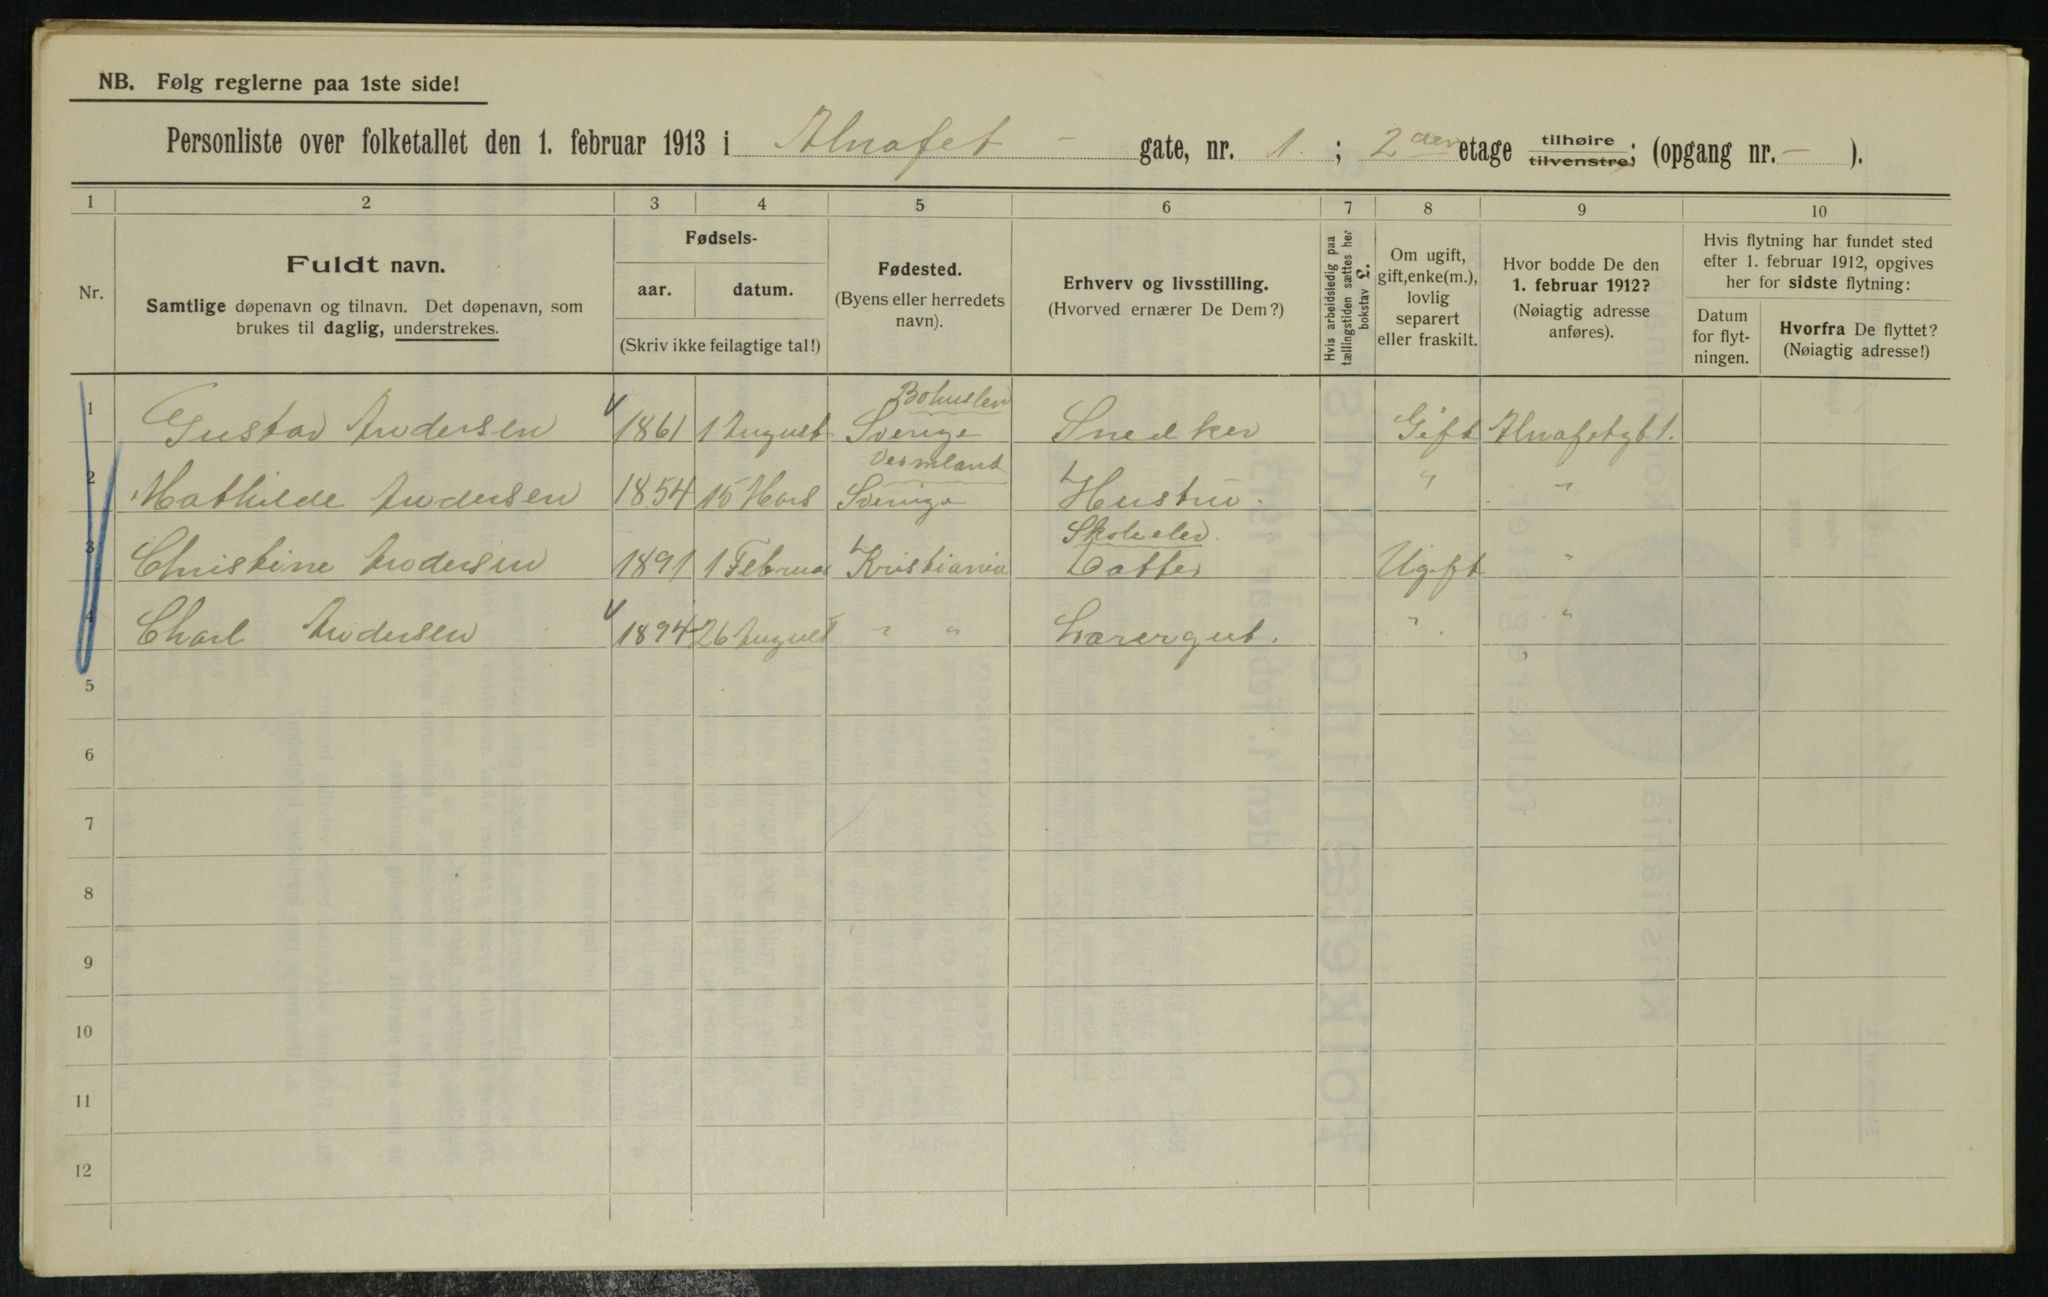 NB. Følg reglerne paa 1ste side!
Personliste over folketallet den 1. februar 1913 i Alnafet - gate, nr. 1. ; 2den etage tilhøire tilvenstre; (opgang nr. - ).
1 2 3 4 5 6 7 8 9 10
Nr.
Fuldt navn.
Samtlige døpenavn og tilnavn. Det døpenavn, som
brukes til daglig, understrekes.
Fødsels-
aar. datum.
(Skriv ikke feilagtige tal!)
Fødested.
(Byens eller herredets
navn).
Erhverv og livsstilling.
(Hvorved ernærer De Dem?)
Hvis arbeidsledig paa
tællingstiden sættes her
bokstav L.
Om ugift,
gift, enke(m.),
lovlig
separert
eller fraskilt.
Hvor bodde De den
1. februar 1912?
(Nøiagtig adresse
anføres).
Hvis flytning har fundet sted
efter 1. februar 1912, opgives
her for sidste flytning:
Datum
for flyt-
ningen.
Hvorfra De flyttet?
(Nøiagtig adresse!)
Bohuslen
1 Gustav Andersen 1861 1 August Sverige Snedker Gift Alnafetgt 1.
Vermland
2 Mathilde Andersen 1854 15 Mars Sverige Hustru. " "
Skoleelev.
3 Christine Andersen 1891 1 Februar Kristiania Datter Ugift "
4 Charl Andersen 1894 26 August " " Lærergut. " "
5
6
7
8
9
10
11
12